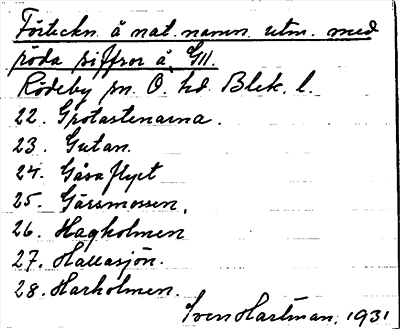 Förteckn. å nat. namn. utm. med
röda siffror å GK.
Rödeby sn. Ö. hd. Blek. l.
22. Grotastenarna.
23. Gutan.
24. Gåsaflyet
25. Gärsmossen.
26. Hagholmen
27. Hallasjön.
28. Harholmen.
Sven Hartman, 1931